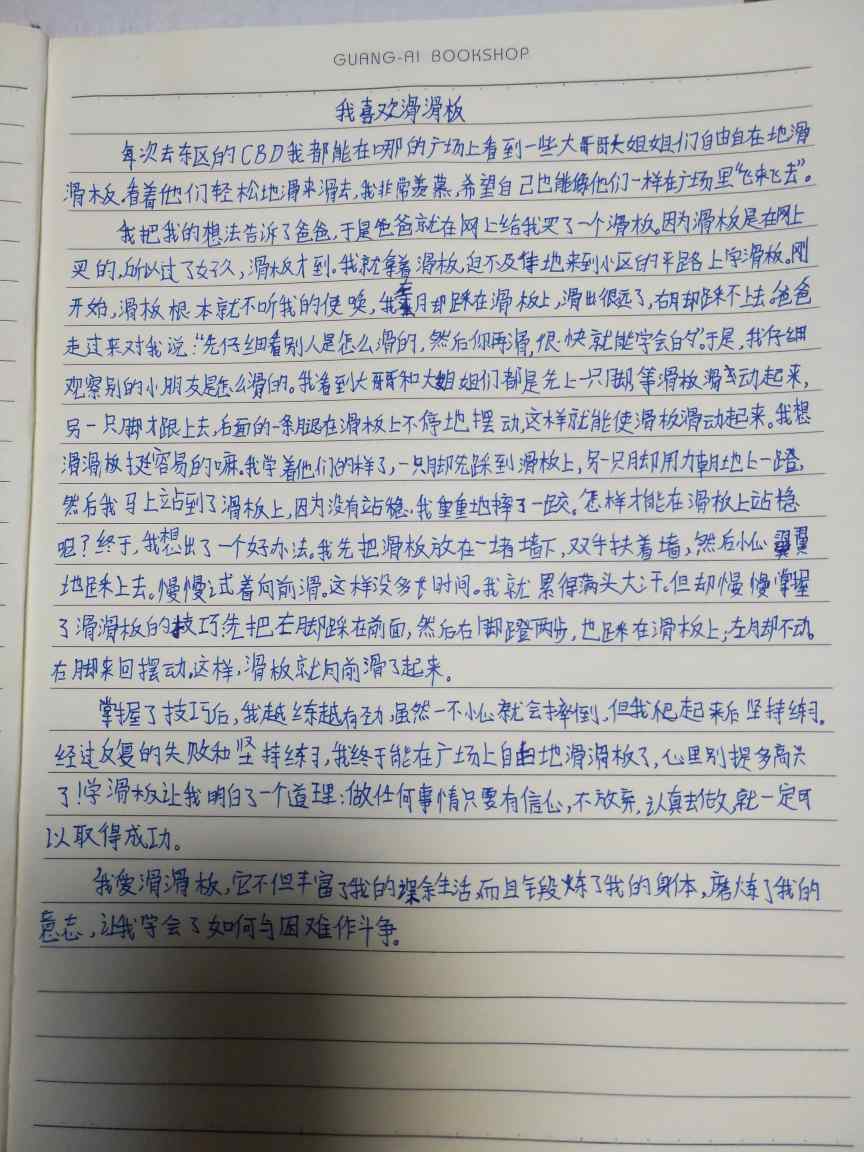 GUANG-AI BOOKSHOP
我喜欢滑滑板
每次去东区的CBD我都能在哪的广场上看到一些大哥哥大姐姐们自由自在地滑
滑板。看着他们轻松地滑来滑去,我非常羡慕,希望自己也能像他们一样在广场里“飞来飞去”。
我把我的想法告诉了爸爸,于是爸爸就在网上给我买了一个滑板。因为滑板是在网上
买的,所以过了好久,滑板才到。我就拿着滑板,迫不及待地来到小区的平路上学滑板。刚
开始,滑板根本就不听我的使唤,我左脚踩在滑板上,滑出很远了,右脚却踩不上去。爸爸
走过来对我说:“先仔细看别人是怎么滑的,然后你再滑,很快就能学会的”。于是,我仔细
观察别的小朋友是怎么滑的。我看到大哥哥和大姐姐们都是先上一只脚,等滑板滑动起来,
另一只脚才跟上去,后面的一条腿在滑板上不停地摆动,这样就能使滑板滑动起来。我想
滑滑板挺容易的嘛。我学着他们的样了,一只脚先踩到滑板上,另一只脚用力朝地上一蹬,
然后我马上站到了滑板上,因为没有站稳,我重重地摔了一跤。怎样才能在滑板上站稳
呢?终于,我想出了一个好办法。我先把滑板放在一堵墙下,双手扶着墙,然后小心翼翼
地踩上去。慢慢试着向前滑。这样没多长时间。我就累得满头大汗。但却慢慢掌握
了滑滑板的技巧先把左脚踩在前面,然后右脚蹬两步,也踩在滑板上;左脚不动。
右脚来回摆动。这样,滑板就向前滑了起来。
掌握了技巧后,我越练越有劲,虽然一不小心就会摔倒,但我爬起来后坚持练习。
经过反复的失败和坚持练习,我终于能在广场上自由地滑滑板了,心里别提多高兴
了!学滑板让我明白了一个道理:做任何事情只要有信心,不放弃,认真去做,就一定可
以取得成功。
我爱滑滑板,它不但丰富了我的课余生活,而且锻炼了我的身体,磨炼了我的
意志,让我学会了如何与困难作斗争。